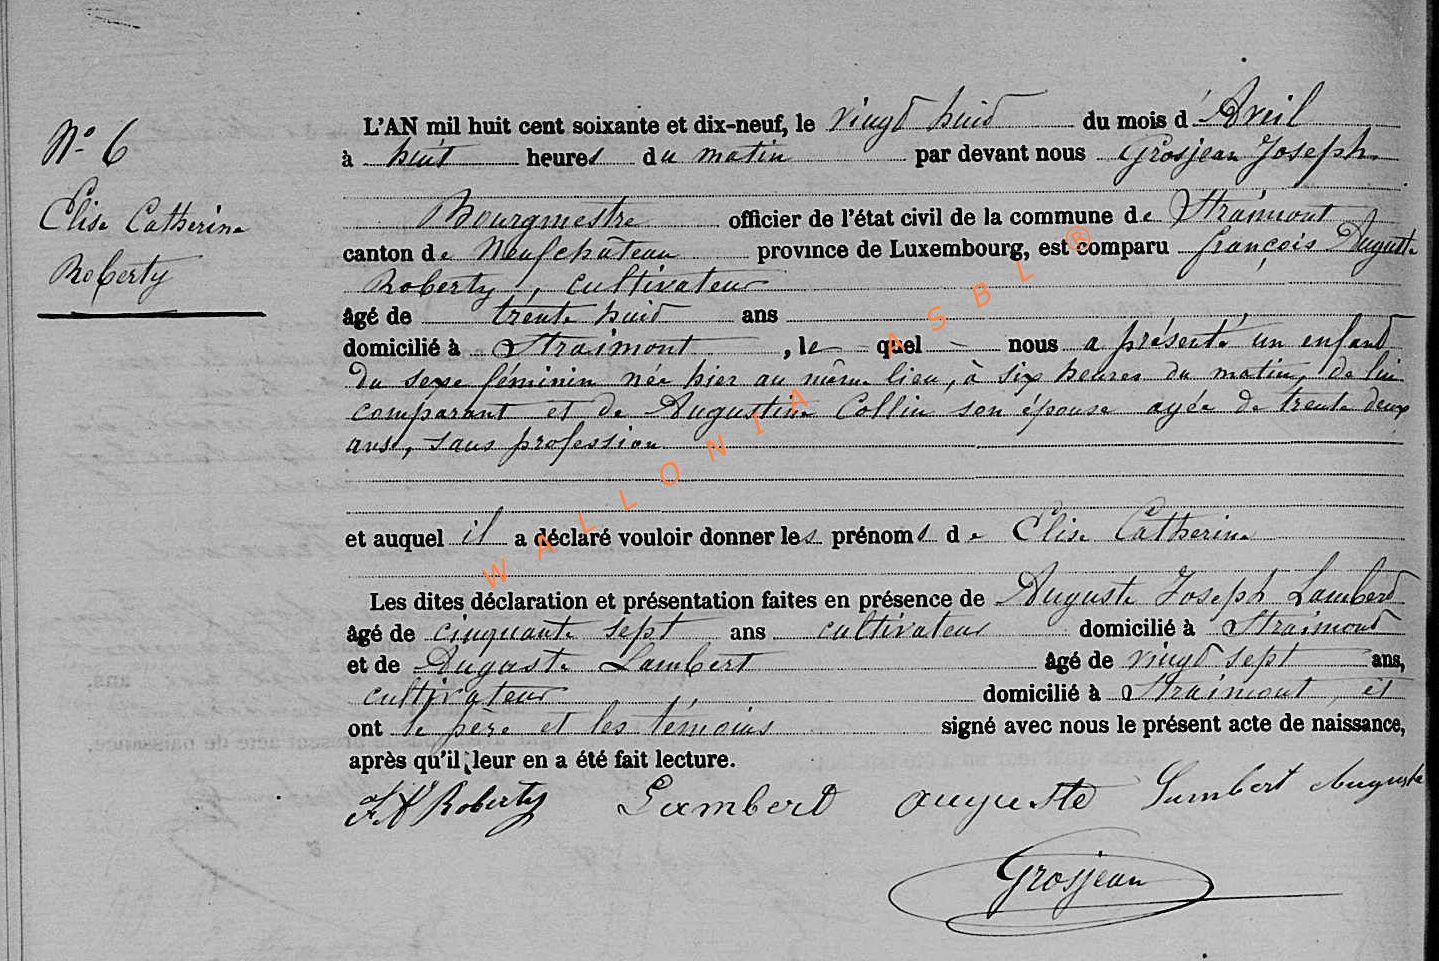 N° 6
Elise Catherine
Roberty
L'AN mil huit cent soixante et dix-neuf, le vingt huit du mois d'Avril
à huit heures du matin par devant nous Grosjean Joseph
Bourgmestre officier de l'état civil de la commune de Straimont
canton de Neufchâteau province de Luxembourg, est comparu françois Auguste
Roberty, cultivateur
âgé de trente huit ans
domicilié à Straimont, le quel nous a présenté un enfant
du sexe féminin née hier au même lieu, à six heures du matin, de lui
comparant et de Augustine Collin son épouse agée de trente deux
ans, sans profession
et auquel il a déclaré vouloir donner les prénoms de Elise Catherine
Les dites déclaration et présentation faites en présence de Auguste Joseph Lambert
âgé de cinquante sept ans cultivateur domicilié à Straimont
et de Auguste Lambert âgé de vingt sept ans,
cultivateur domicilié à Straimont, et
ont le père et les témoins signé avec nous le présent acte de naissance,
après qu'il leur en a été fait lecture.
F A Roberty Lambert auguste Lambert Auguste
Grosjean
WALLONIA ASBL ®